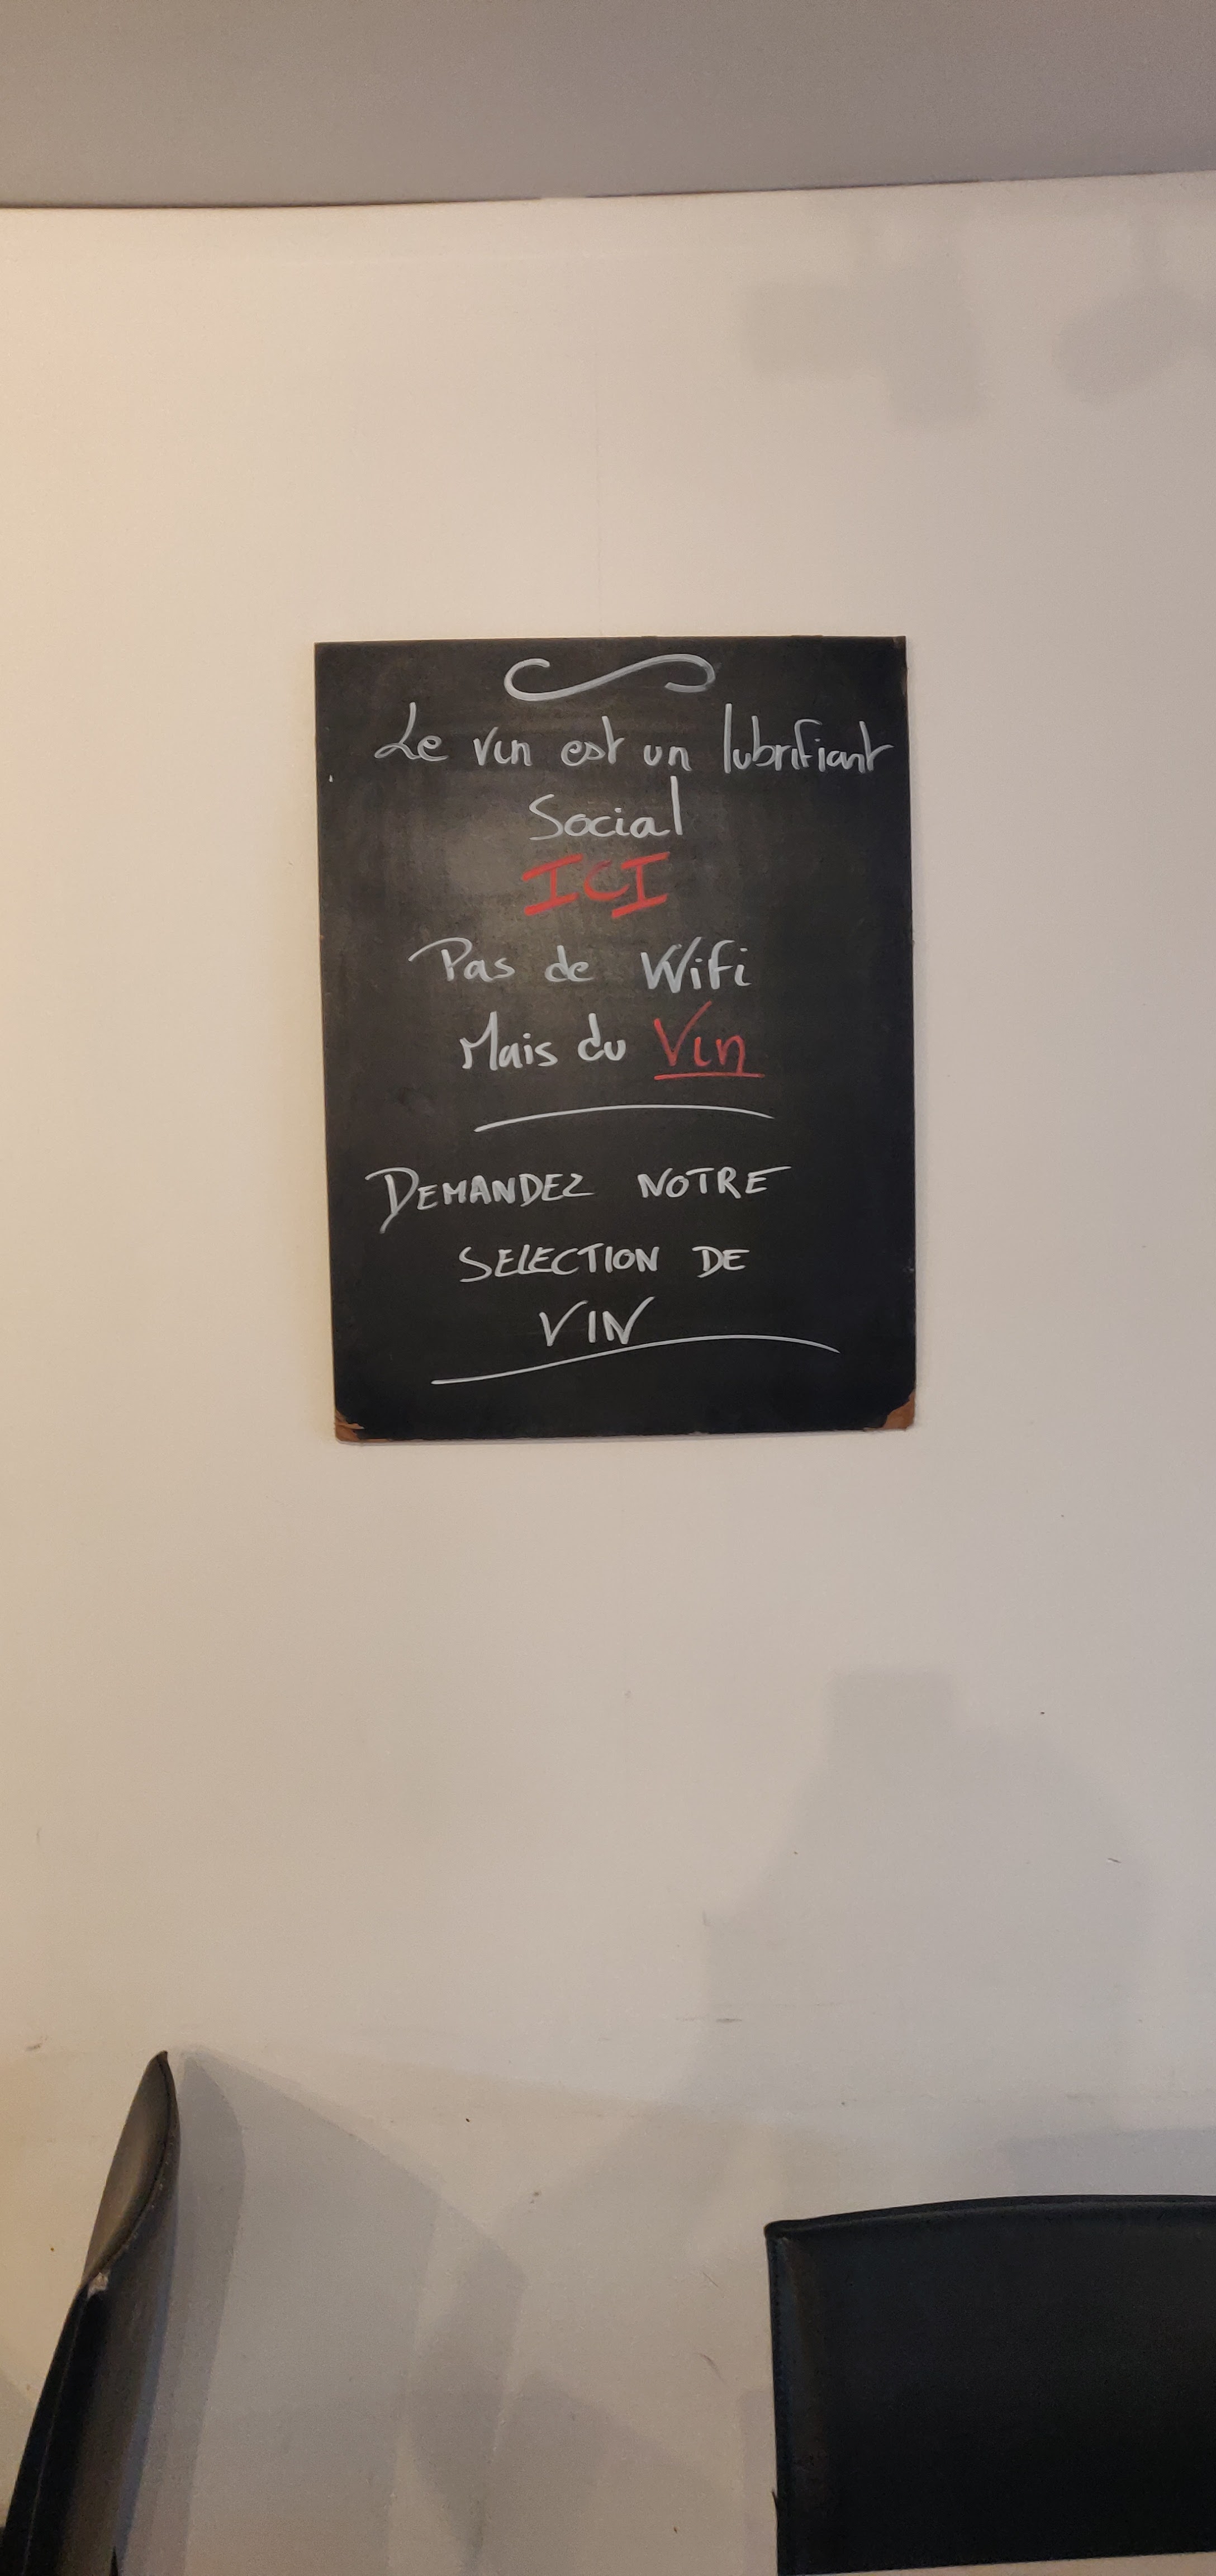 Le vin est un lubrifiant
Social
ICI
Pas de Wifi
Mais du Vin
DEMANDEZ NOTRE
SELECTION DE
VIN